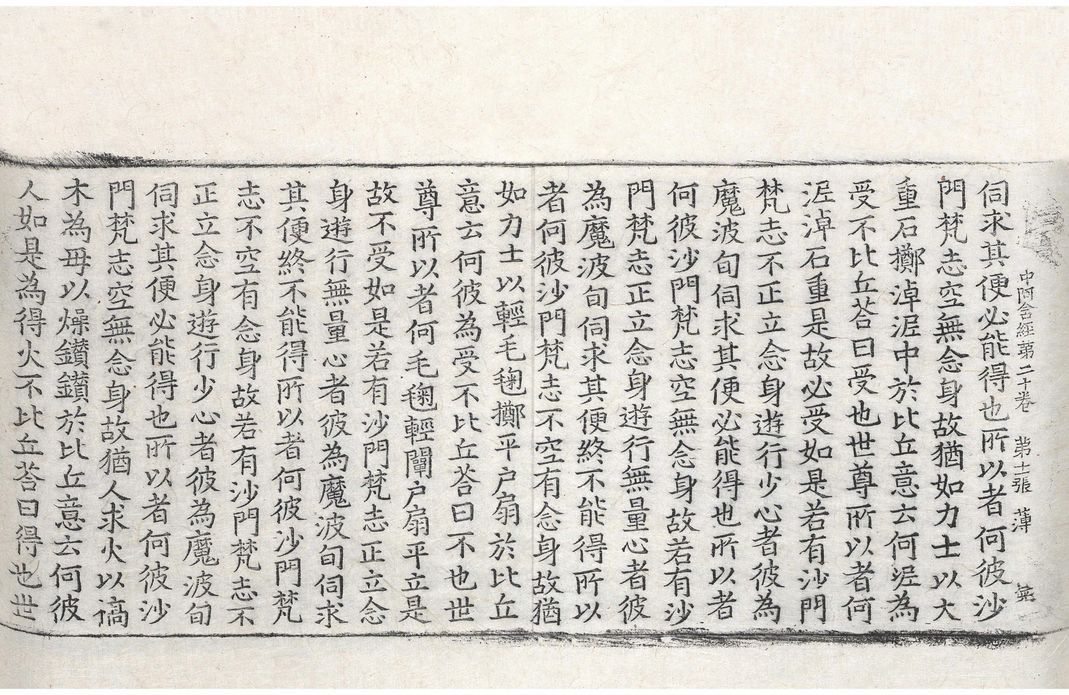 中阿含經第二十卷 第十一張 薄
伺求其便必能得也所以者何彼沙
門梵志空無念身故猶如力士以大
重石擲淖埿中於比丘意云何埿為
受不比丘荅曰受也世尊所以者何
埿淖石重是故必受如是若有沙門
梵志不正立念身遊行少心者彼為
魔波旬伺求其便必能得也所以者
何彼沙門梵志空無念身故若有沙
門梵志正立念身遊行無量心者彼
為魔波旬伺求其便終不能得所以
者何彼沙門梵志不空有念身故猶
如力士以輕毛毱擲平户扇於比丘
意云何彼為受不比丘荅曰不也世
尊所以者何毛毱輕闡户扇平立是
故不受如是若有沙門梵志正立念
身遊行無量心者彼為魔波旬伺求
其便終不能得所以者何彼沙門梵
志不空有念身故若有沙門梵志不
正立念身遊行少心者彼為魔波旬
伺求其便必能得也所以者何彼沙
門梵志空無念身故猶人求火以槁
木為母以燥鑽鑽於比丘意云何彼
人如是為得火不比丘荅曰得也世